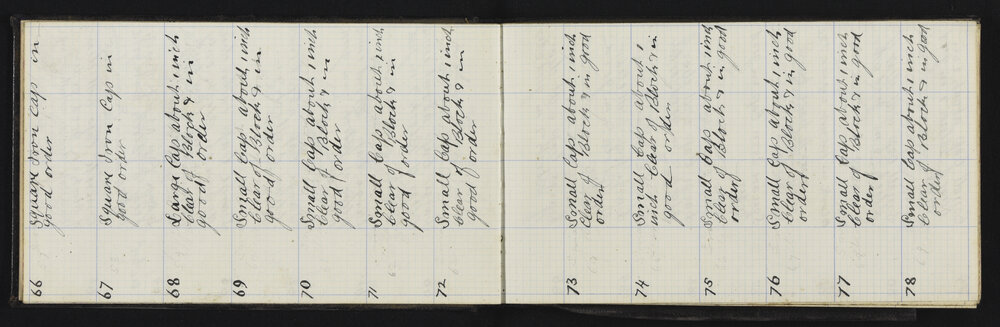 66 Square Iron Cap in
good order
67 Square Iron Cap in
good order
68 Large Cap about 1 inch
Clear of Block & in
good order
69 Small Cap about 1 inch
Clear of Block & in
good order
70 Small Cap about 1 inch
Clear of Block & in
good order
71 Small Cap about 1 inch
Clear of Block & in
good order
72 Small Cap about 1 inch
Clear of Block & in
good order
73 Small Cap about 1 inch
Clear of Block & in good
order
74 Small Cap about 1
inch Clear of Block & in
good order
75 Small Cap about 1 inch
Clear of Block & in good
order
76 Small Cap about 1 inch
Clear of Block & in good
order
77 Small Cap about 1 inch
Clear of Block & in good
order
78 Small Cap about 1 inch
Clear of Block & in good
order